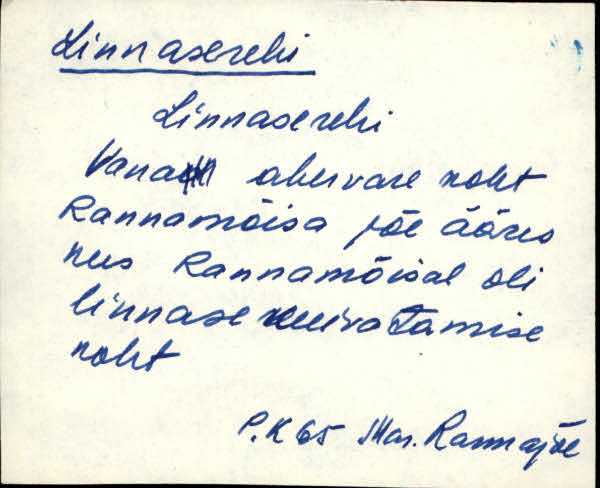 Linnaserehi
Linnaserehi
Vana ahervare koht
Rannamõisa jõe ääres
kus Rannamõisal oli
linnase kuivatamise
koht
P.K 65 Mar. Rannajõe